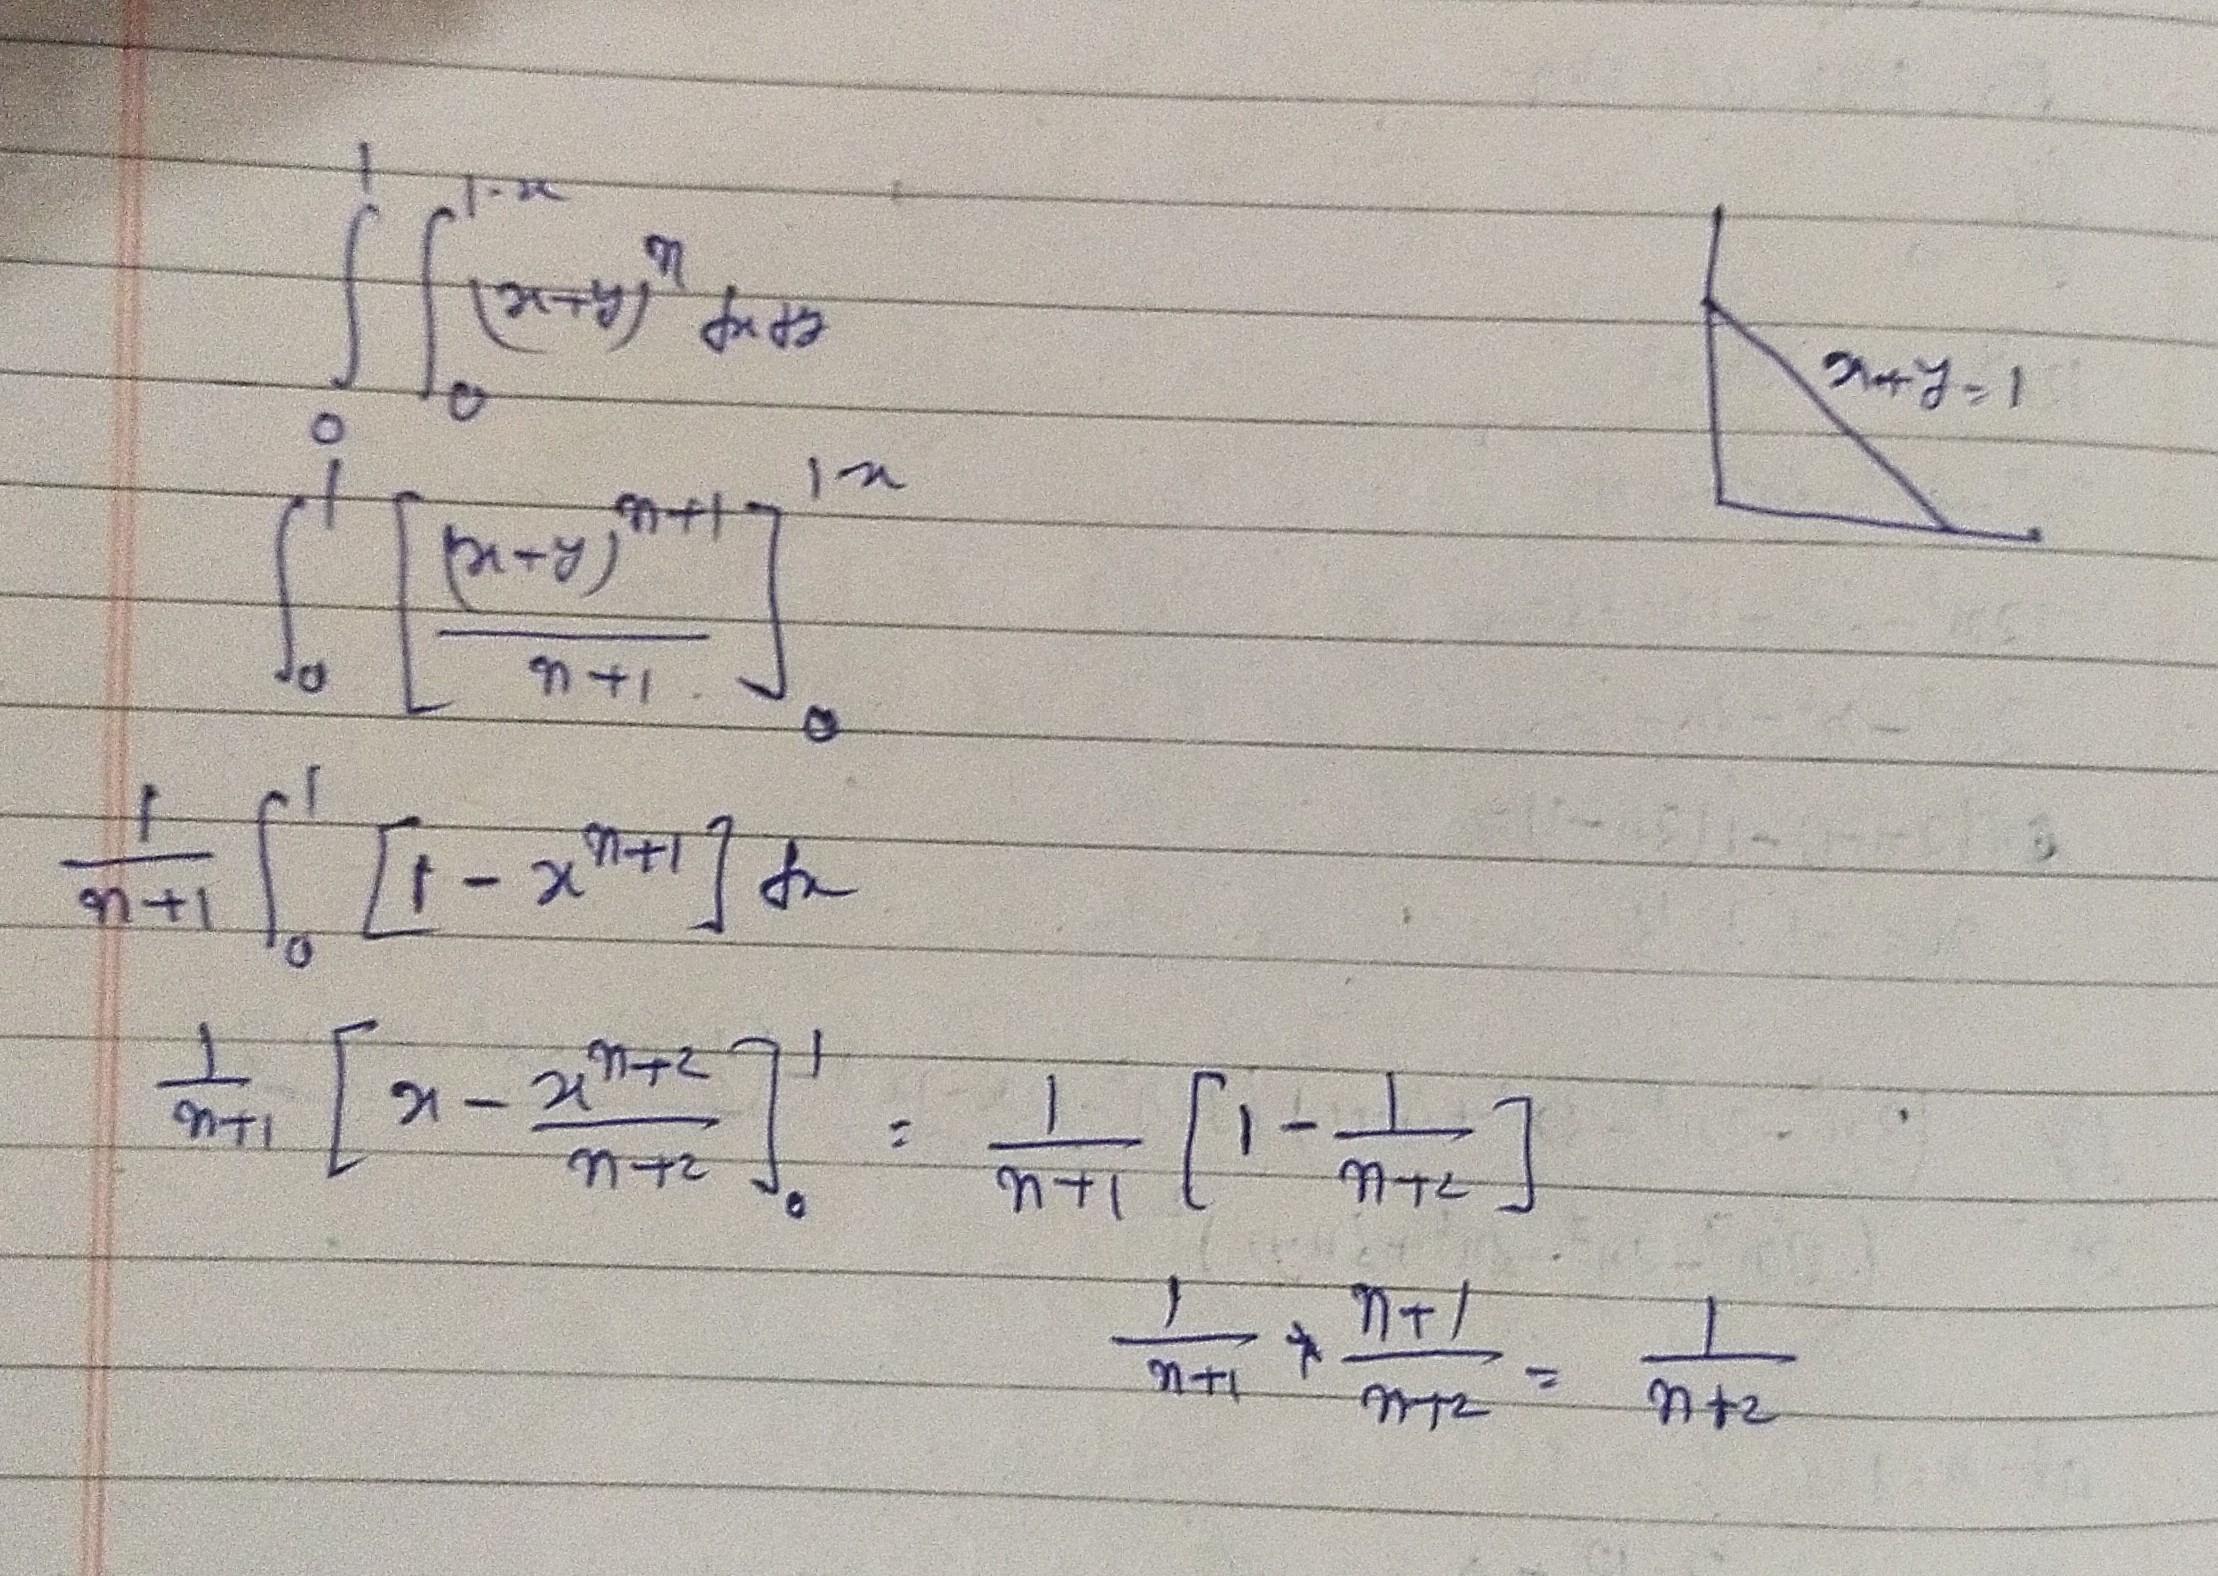 ∫₀¹ ∫₀^(1-x) (x+y)^n dx dy
x+y=1
∫₀¹ [ (x+y)^(n+1) / (n+1) ]₀^(1-x)
1/(n+1) ∫₀¹ [1 - x^(n+1)] dx
1/(n+1) [ x - x^(n+2)/(n+2) ]₀¹ = 1/(n+1) [ 1 - 1/(n+2) ]
1/(n+1) * (n+1)/(n+2) = 1/(n+2)